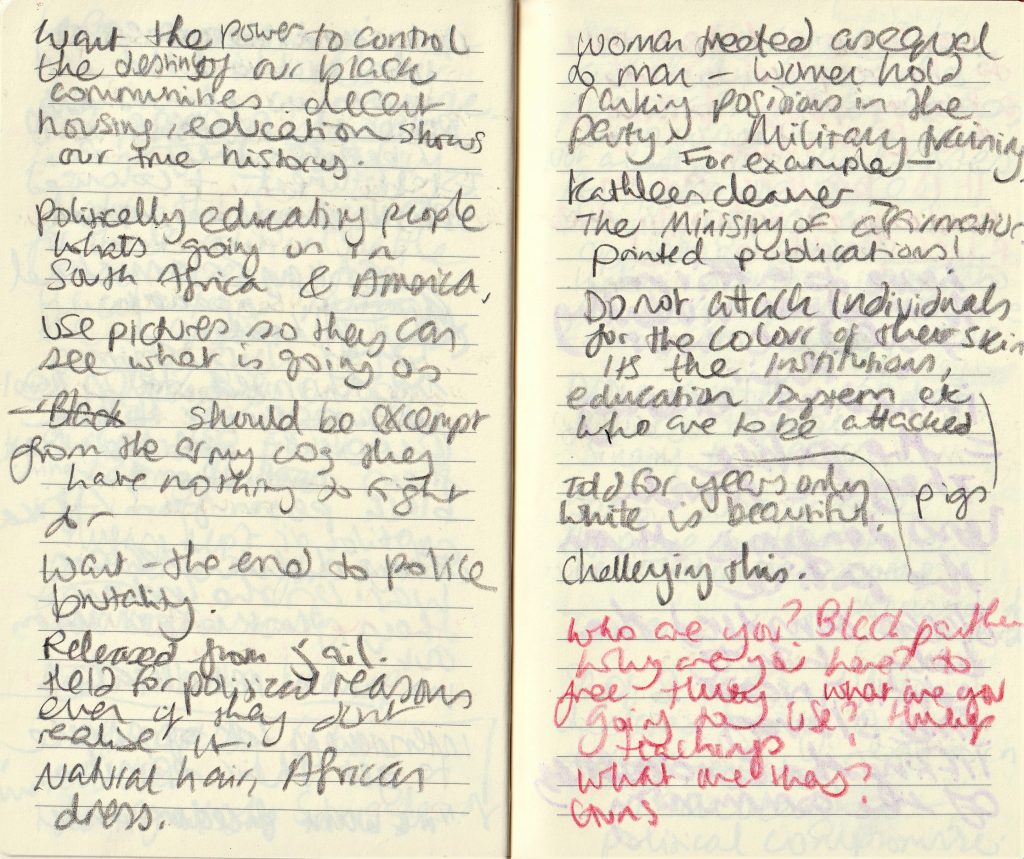 Want the power to control
the destiny of our black
communities decent
housing, education shows
our true history.
politically educating people
whats going on in
South Africa & America,
use pictures so they can
see what is going on
Black should be exempt
from the army cos they
have nothing to fight
for
want - the end to police
brutality.
Released from jail.
Held for political reasons
even if they dont
realise it.
Natural hair, African
dress.
woman treated as equal
to man - women hold
ranking positions in the
party. Military training
For example -
Kathleen cleaver
The Ministry of
printed publications!
Do not attack Individuals
for the colour of their skin
Its the Institutions,
education system etc
who are to be attacked
pigs
Told for years only
white is beautiful.
Challenging this.
Who are you? Black panther
Why are you here? to
free Huey what are you
going to use? Hueys
teachings
What are they?
Guns